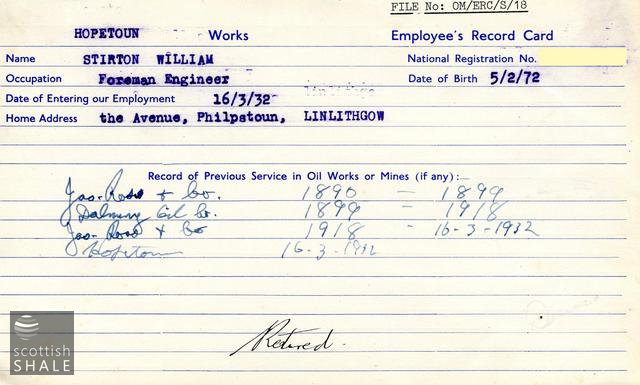 FILE No: OM/ERC/S/18
HOPETOUN Works Employee's Record Card
Name STIRTON WILLIAM National Registration No.
Occupation Foreman Engineer Date of Birth 5/2/72
Date of Entering our Employment 16/3/32
Home Address the Avenue, Philpstoun, LINLITHGOW
Record of Previous Service in Oil Works or Mines (if any):—
Jas. Ross & Co. 1890 = 1899
Dalmeny Oil Co. 1899 = 1918
Jas. Ross & Co 1918 - 16-3-1932
Hopetoun 16-3-1932
Retired.
scottish
SHALE